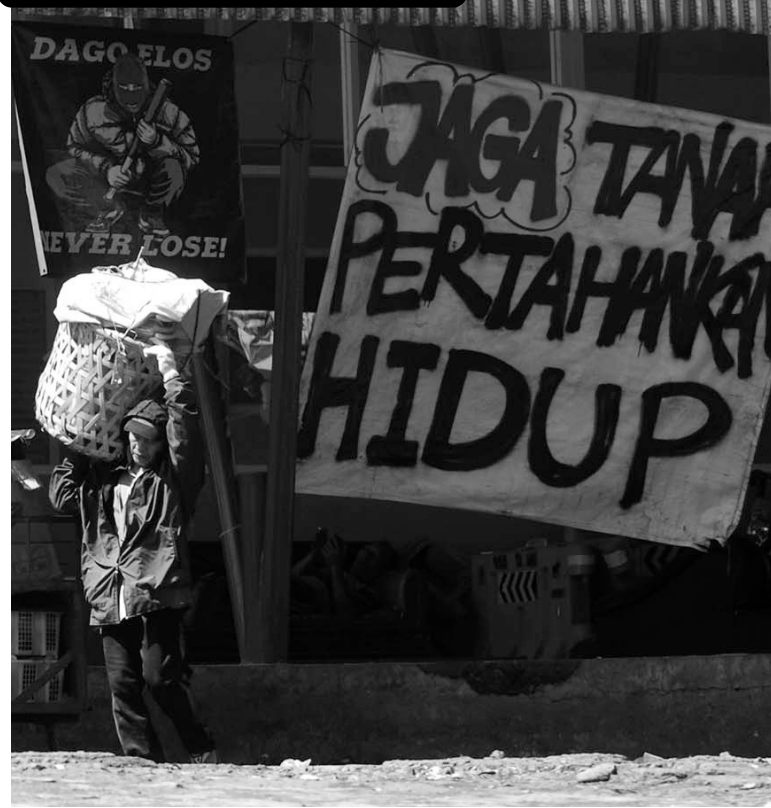 DAGO ELOS
NEVER LOSE!
JAGA TANAH
PERTAHANKAN
HIDUP